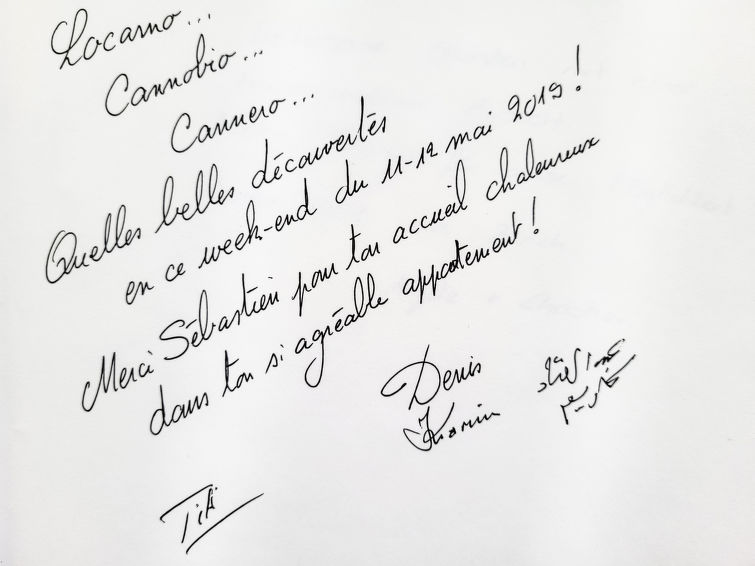 Locarno...
Cannobio...
Cannero...
Quelles belles découvertes
en ce week-end du 11-12 mai 2019 !
Merci Sébastien pour ton accueil chaleureux
dans ton si agréable appartement !
Denis
Karin
Titi